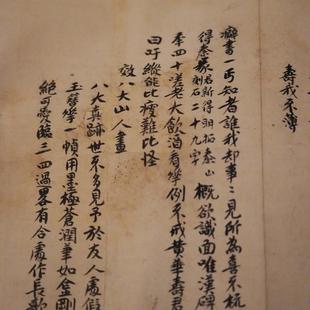 壽我不薄
癖書一丐知者誰我却事二見所為喜不梳
得秦篆名新得明拓泰山刻石二十九字概欲識面唯漢碑
年四十嗟老大飲酒看花例不戒黃華壽君
曰吁縱能比瘦難比怪
效八大山人畫
八大真跡世不多見予於友人處假
玉簪花一幀用墨極蒼潤筆如金剛
絕可愛臨三四過畧有合處作長歌